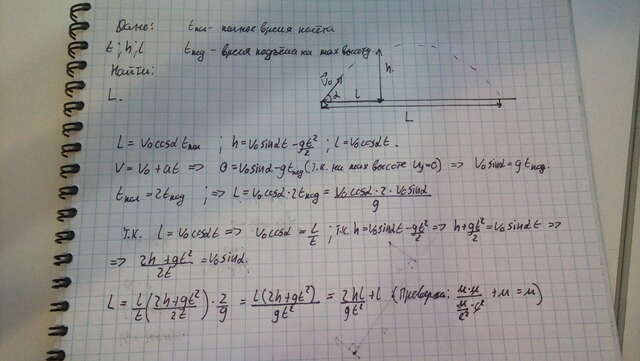 Дано: tпол - полное время полёта
t; h; l tпод - время подъёма на max высоту.
Найти:
L.
V₀ α l h L
L = V₀cosα tпол ; h = V₀sinαt - gt²/2 ; l = V₀cosαt.
V = V₀ + at => 0 = V₀sinα - gtпод (т.к. на max высоте Vy = 0) => V₀sinα = gtпод.
tпол = 2tпод ; => L = V₀cosα · 2tпод = V₀cosα · 2 · V₀sinα / g
Т.к. l = V₀cosαt => V₀cosα = l/t ; т.к. h = V₀sinαt - gt²/2 => h + gt²/2 = V₀sinαt =>
=> (2h + gt²)/2t = V₀sinα.
L = l/t ((2h + gt²)/2t) · 2/g = l(2h + gt²)/gt² = 2hl/gt² + l (Проверка: м·м / (м/с² · с²) + м = м)